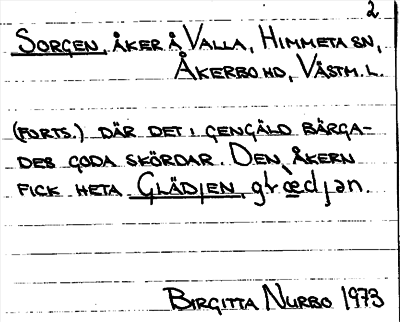 2
SORGEN, ÅKER Å VALLA, HIMMETA SN,
ÅKERBO HD, VÄSTM. L.
(FORTS.) DÄR DET I GENGÄLD BÄRGA-
DES GODA SKÖRDAR. DEN ÅKERN
FICK HETA GLÄDJEN,
BIRGITTA NURBO 1973